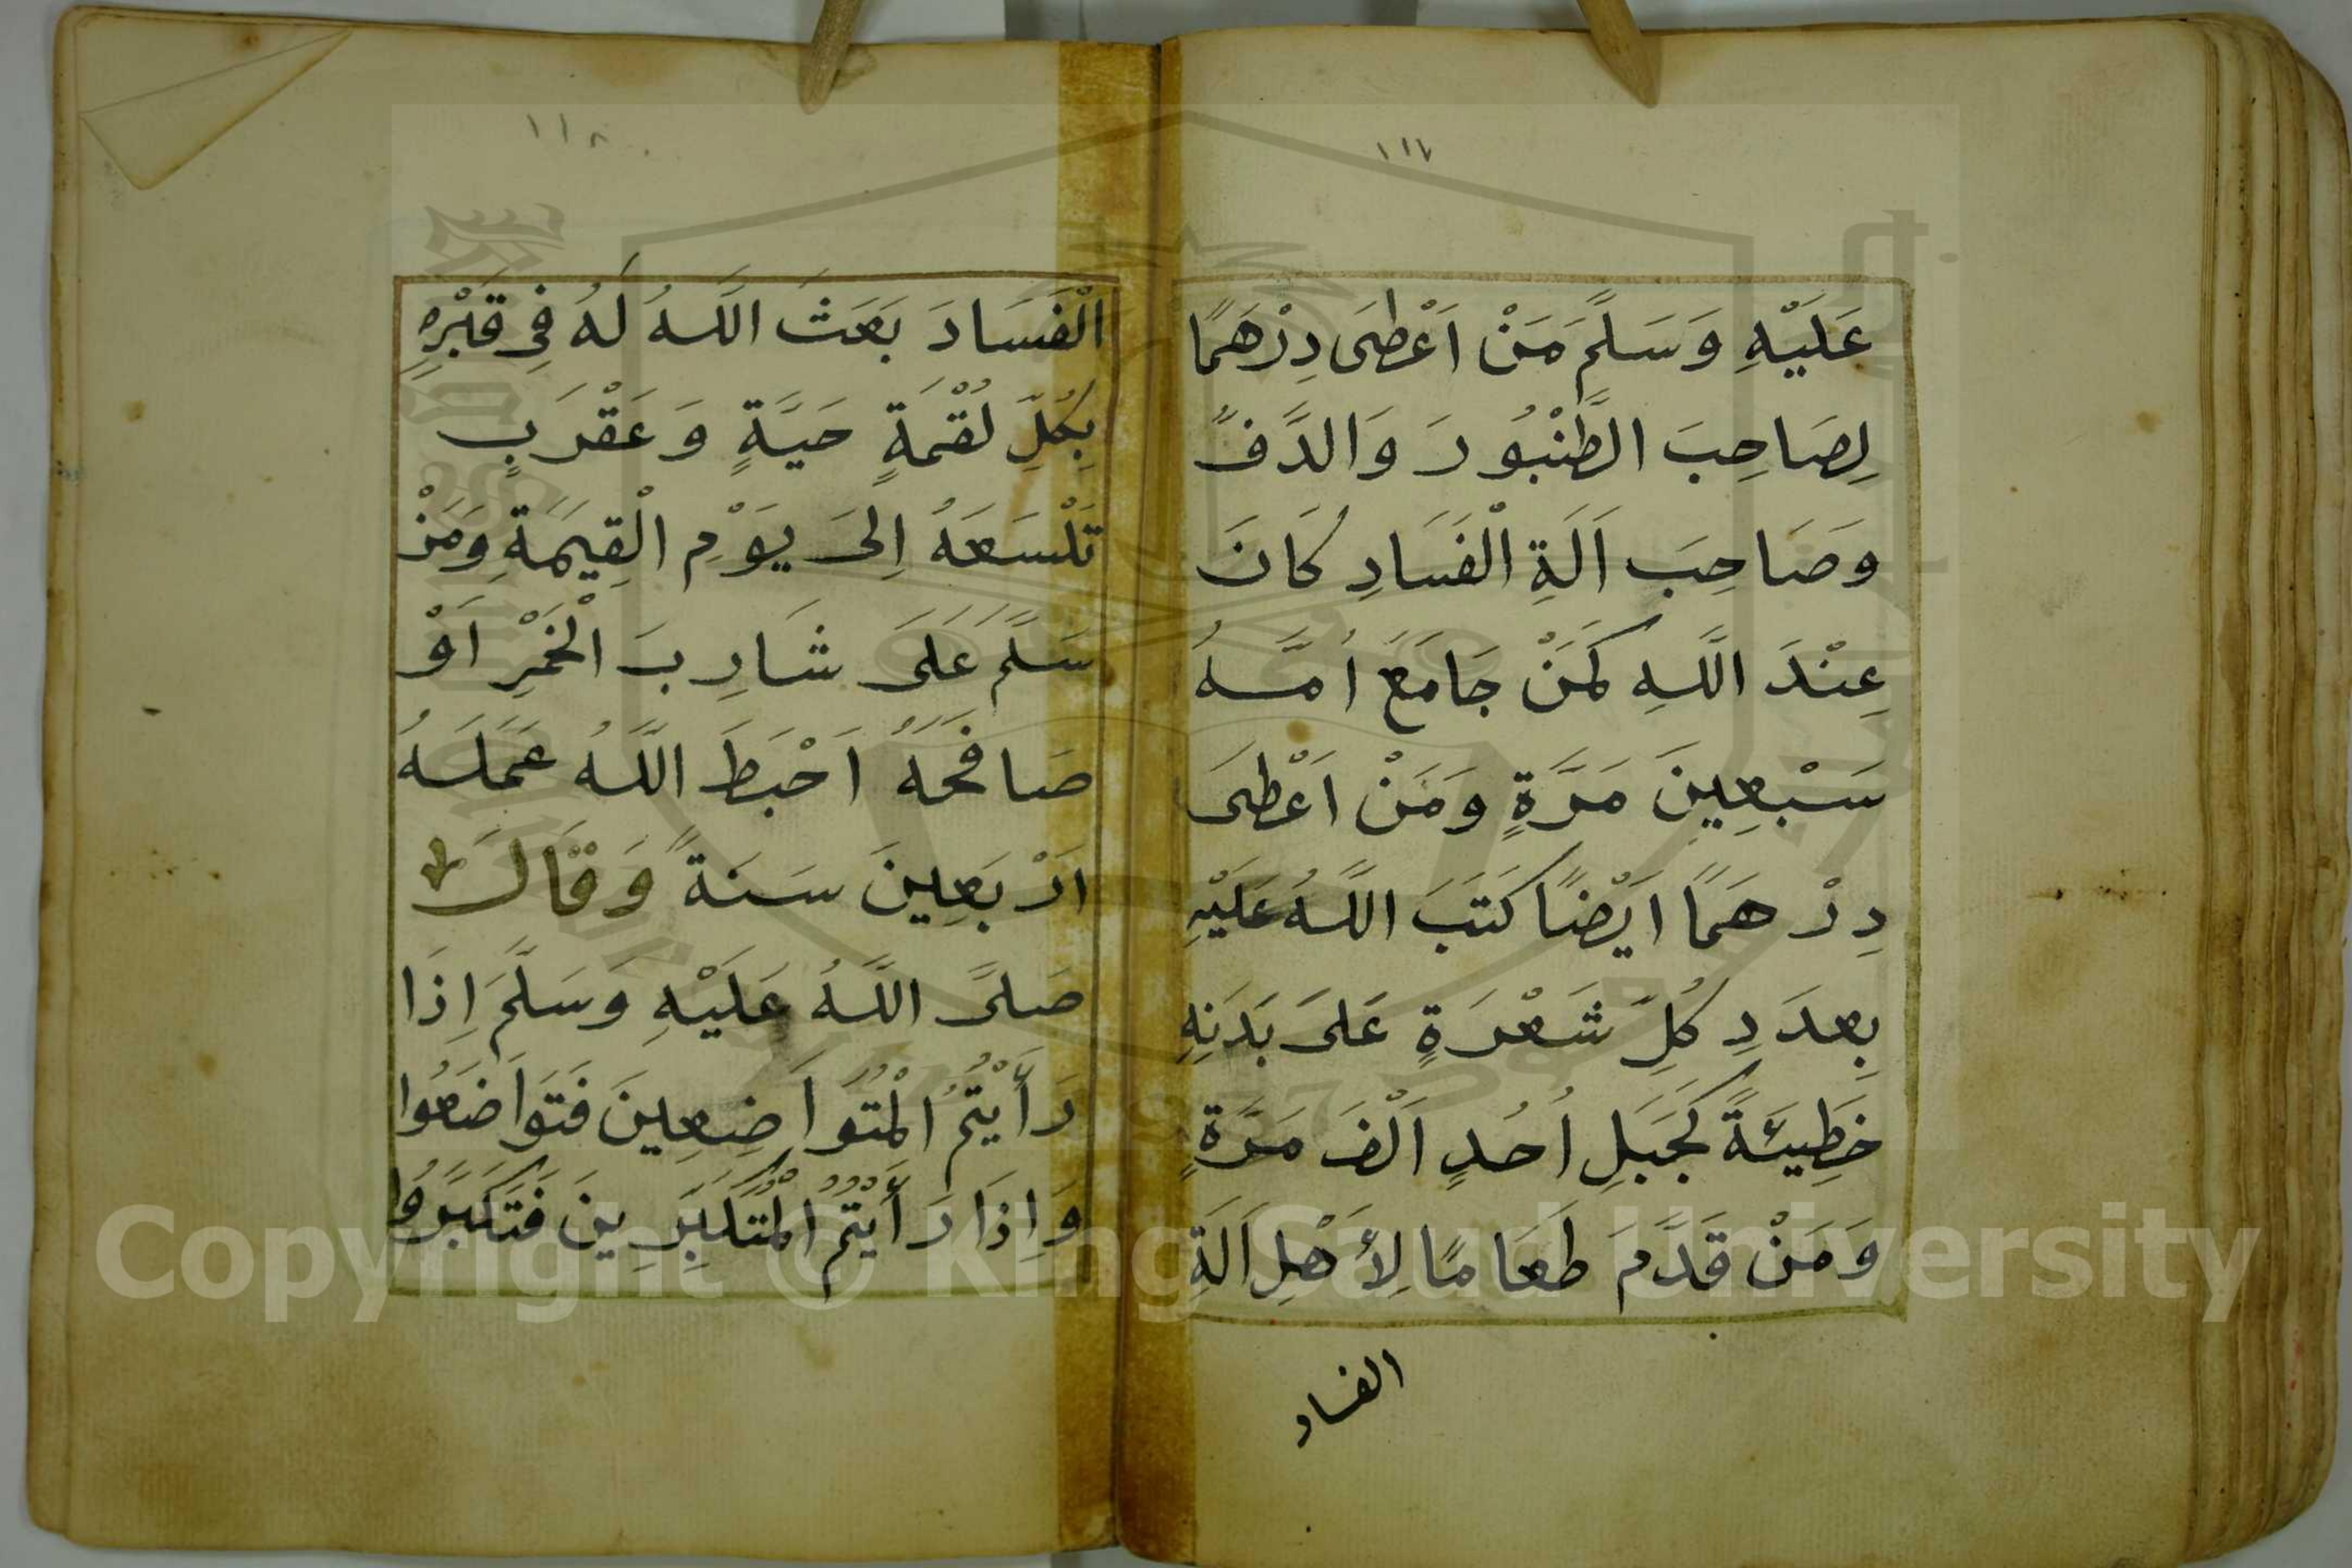 ١١٧
عَلَيْهِ وَسَلَّمَ مَنْ اَعْطٰى دِرْهَمًا
لِصَاحِبَ الطَّنْبُورَ وَالدَّفَّ
وَصَاحِبَ اَلَةِ الْفَسَادِ كَانَ
عِنْدَ اللَّهِ كَمَنْ جَامَعَ اُمَّهُ
سَبْعِينَ مَرَّةٍ وَمَنْ اَعْطَى
دِرْهَمًا اَيْضًا كَتَبَ اللَّهُ عَلَيْهِ
بِعدَدِ كُلِّ شَعْرَةٍ عَلَى بَدَنِهِ
خَطِيئَةً كَجَبَلِ اُحُدٍ اَلْفَ مَرَّةٍ
وَمَنْ قَدَّمَ طَعَامًا لِأَهْلِ اَلَةِ
الفساد
١١٨
الْفَسَادَ بَعَثَ اللَّهُ لَهُ فِي قَبْرِهِ
بِكُلِّ لُقْمَةٍ حَيَّةٍ وَعَقْرَبٍ
تَلْسَعَهُ اِلَى يَوْمِ الْقِيمَةِ وَمَنْ
سَلَّمَ عَلَى شَارِبَ الْخَمْرِ اَوْ
صَافَحَهُ اَحْبَطَ اللَّهُ عَمَلَهُ
اَرْبَعِينَ سَنَةً وَقَالَ
صَلَّى اللَّهُ عَلَيْهِ وَسَلَّمَ اِذَا
رَأَيْتُمُ الْمُتَوَاضِعِينَ فَتَوَاضَعُوا
وَاِذَا رَأَيْتُمُ الْمُتَكَبِّرِينَ فَتَكَبَّرُوا
Copyright © King Saud University